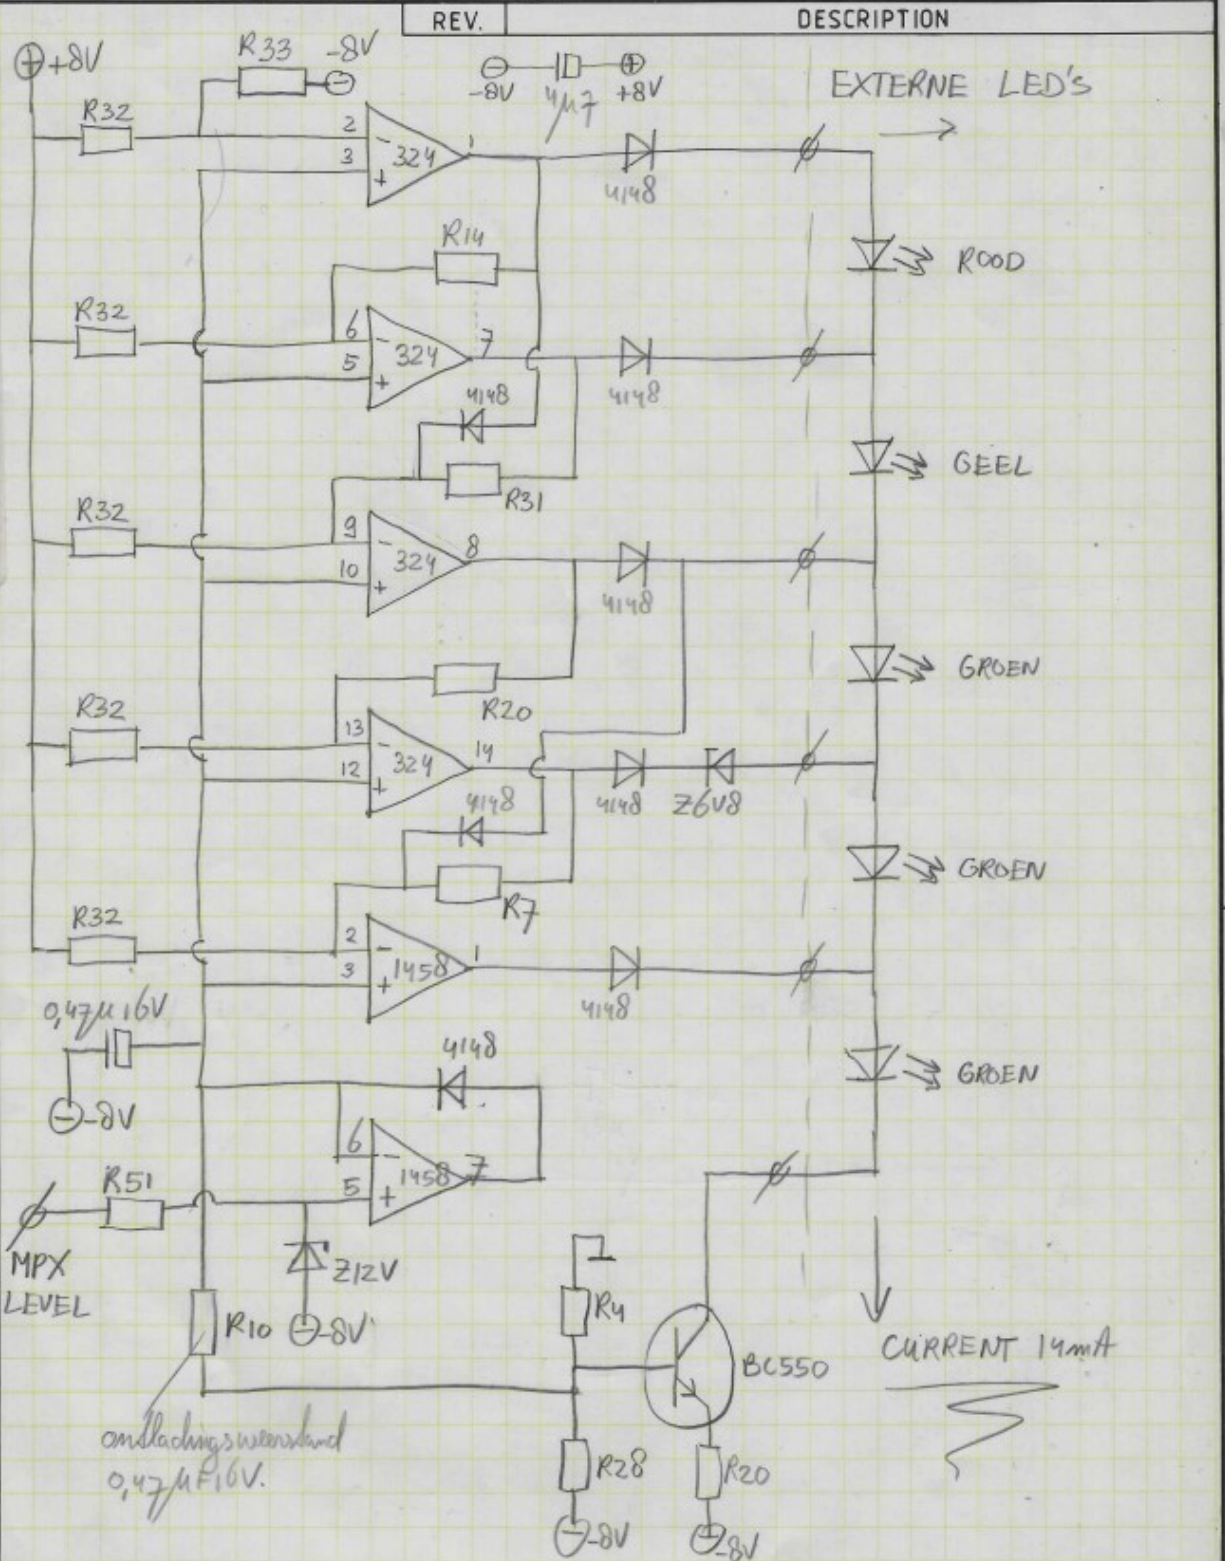 REV.
DESCRIPTION
+8V
R33
-8V
-8V
4µ7
+8V
EXTERNE LED's
R32
2
3
-
+
324
1
4148
R14
ROOD
R32
6
5
-
+
324
7
4148
4148
GEEL
R31
R32
9
10
-
+
324
8
4148
GROEN
R20
R32
13
12
-
+
324
14
4148
4148
Z6V8
GROEN
R7
R32
2
3
-
+
1458
1
4148
0,47µ 16V
4148
GROEN
-8V
6
5
-
+
1458
7
R51
MPX
LEVEL
Z12V
R10
-8V
R4
BC550
CURRENT 14mA
ontladingsweerstand
0,47µF16V.
R28
R20
-8V
-8V